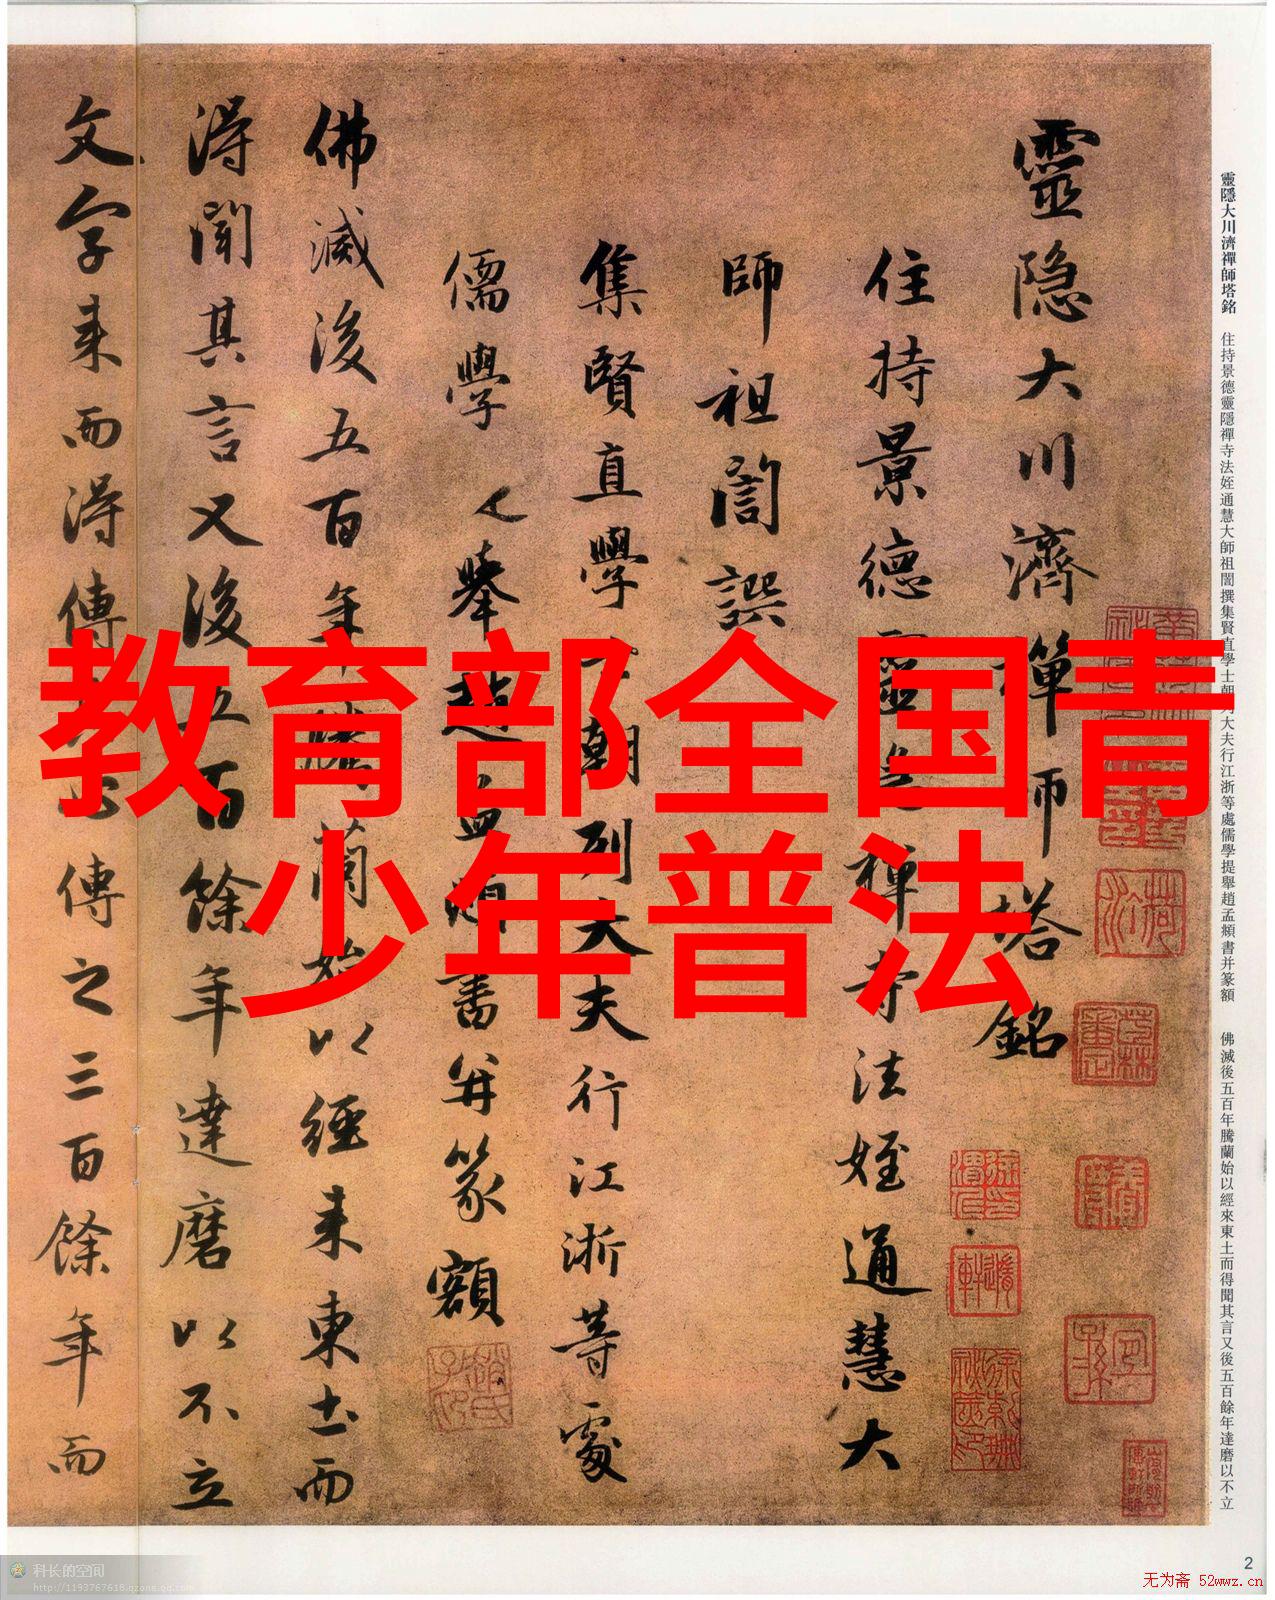 靈隐大川濟禪師塔銘
住持景德靈隐禪寺法姪通慧大
師祖誾譔
集賢直學士朝列大夫行江浙等處
儒學提舉趙孟頫書并篆額
佛滅後五百年騰蘭始以經来東土而
得聞其言又後五百餘年達磨以不立
文字来而得傳
傳之三百餘年而
教育部全国青
少年普法
靈隱大川濟禪師塔銘 住持景德靈隱禪寺法姪通慧大師祖誾撰集賢直學士朝列大夫行江浙等處儒學提舉趙孟頫書并篆額 佛滅後五百年騰蘭始以經來東土而得聞其言又後五百餘年達磨以不立
2
科长的空间
http://1193767618.qzone.qq.com
无为斋 52wwz.cn